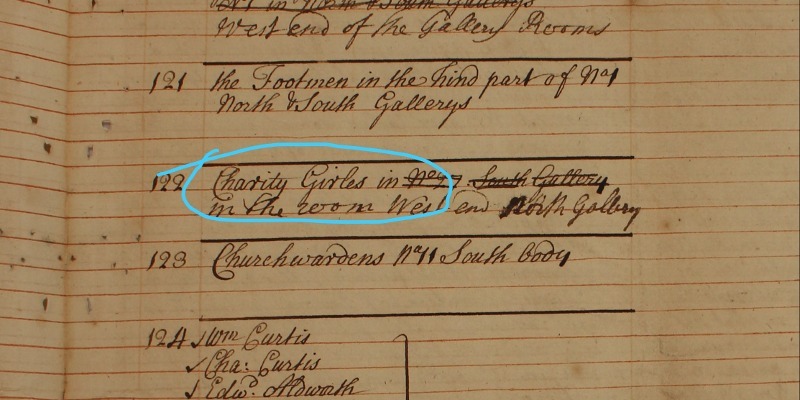 West end of the Gallery Rooms
121 the Footmen in the hind part of No 1
North & South Gallerys
122 Charity Girles in No 7 South Gallery
in the room West end North Gallery
123 Churchwardens No 11 South body
124 Wm Curtis
Cha: Curtis
Edwd. Aldworth